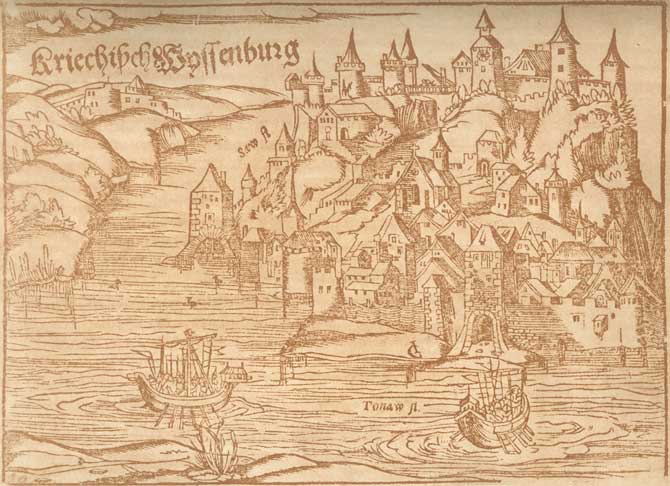 Kriechisch Wyssenburg
Saw fl.
Tonaw fl.